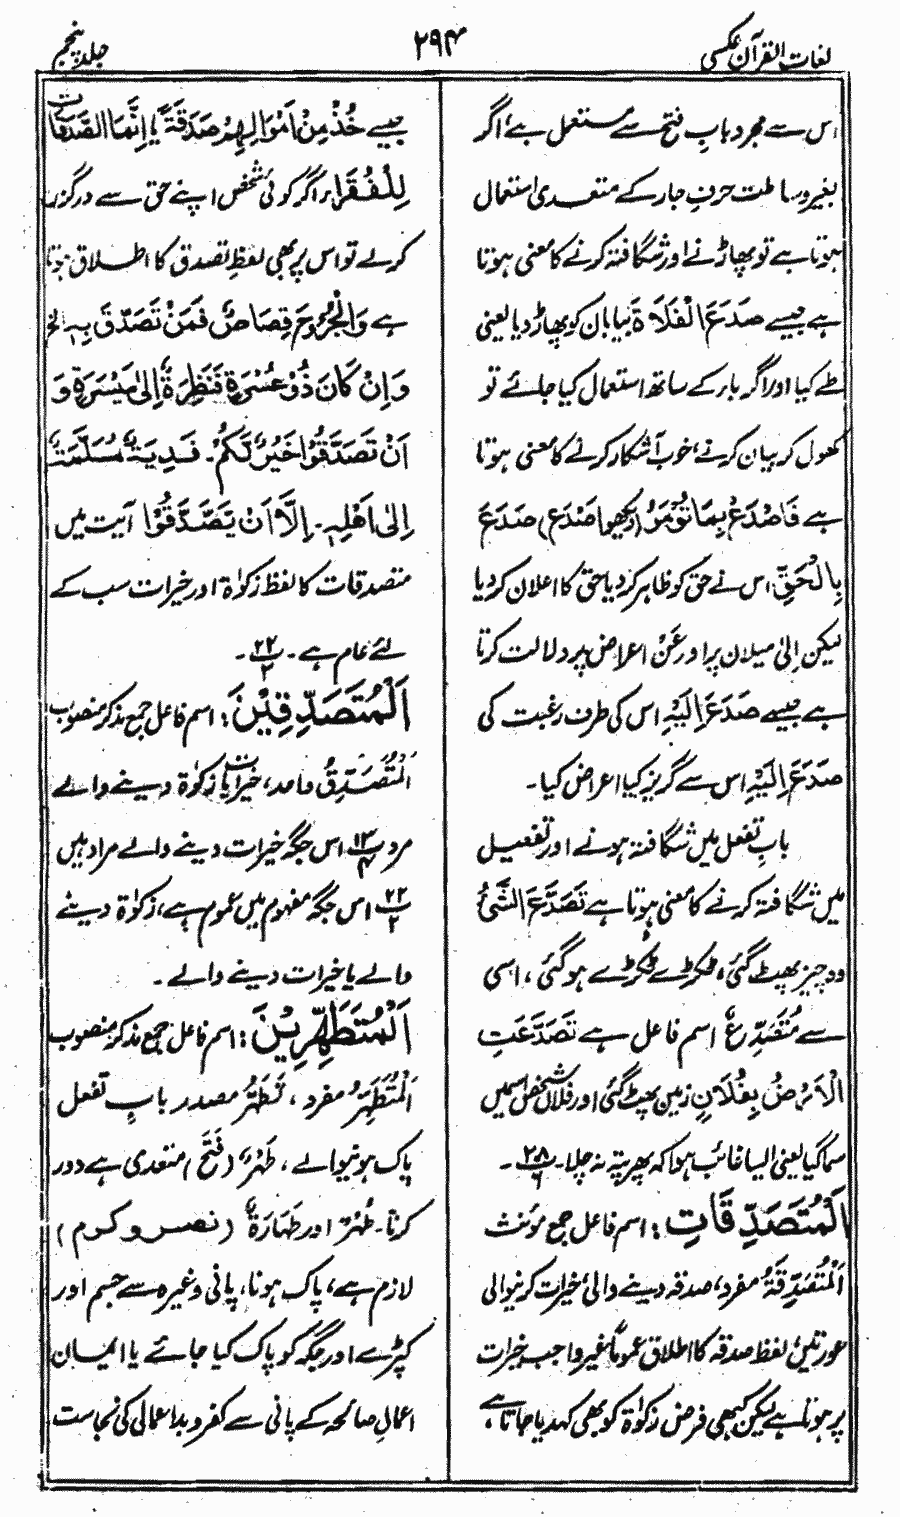 لغات القرآن عکسی
۲۹۴
جلد پنجم
اس سے مجرد باب فتح سے مستعمل ہے، اگر
بغیر وساطت حرفِ جار کے متعدی استعمال
ہوتا ہے تو پھاڑنے اور شگافتہ کرنے کا معنی ہوتا
ہے جیسے صَدَعَ الْفَلَاۃَ بیابان کو پھاڑ دیا یعنی
طے کیا اور اگر بار کے ساتھ استعمال کیا جائے تو
کھول کر بیان کرنے، خوب آشکار کرنے کا معنی ہوتا
ہے فَاصْدَعْ بِمَا تُؤْمَرُ (دیکھو اصْدَع) صَدَعَ
بِالْحَقِّ اس نے حق کو ظاہر کر دیا حق کا اعلان کر دیا
لیکن اِلیٰ میلان پر اور عَنْ اعراض پر دلالت کرتا
ہے جیسے صَدَعَ اِلَیْہِ اس کی طرف رغبت کی
صَدَعَ اِلَیْہِ اس سے گریز کیا اعراض کیا۔
بابِ تفعل میں شگافتہ ہونے اور تفعیل
میں شگافتہ کرنے کا معنی ہوتا ہے تَصَدَّعَ الشَّیُٔ
وہ چیز پھٹ گئی، ٹکڑے ٹکڑے ہو گئی، اسی
سے مُتَصَدِّعٌ اسم فاعل ہے تَصَدَّعَتِ
الْاَرْضُ بِفُلَانٍ زمین پھٹ گئی اور فلاں شخص اسمیں
سما گیا یعنی ایسا غائب ہوا کہ پھر پتہ نہ چلا۔ ۲۸/۶ ۔
اَلْمُتَصَدِّقَاتِ : اسم فاعل جمع مؤنث
اَلْمُتَصَدِّقَۃُ مفرد، صدقہ دینے والی، خیرات کرنیوالی
عورتیں، لفظ صدقہ کا اطلاق عموماً غیر واجب خیرات
پر ہوتا ہے لیکن کبھی فرض زکوٰۃ کو بھی کہہ دیا جاتا ہے،
جیسے خُذْ مِنْ اَمْوَالِہِمْ صَدَقَۃً یا اِنَّمَا الصَّدَقَاتُ
لِلْفُقَرَا ر اگر کوئی شخص اپنے حق سے درگزر
کرلے تو اس پر بھی لفظِ تصدق کا اطلاق ہوتا
ہے وَالْجُرُوْحَ قِصَاصٌ فَمَنْ تَصَدَّقَ بِہٖ الخ
وَاِنْ کَانَ ذُوْ عُسْرَۃٍ فَنَظِرَۃٌ اِلیٰ مَیْسَرَۃٍ وَ
اَنْ تَصَدَّقُوْا خَیْرٌ لَّکُمْ۔ فَدِیَۃٌ مُسَلَّمَۃٌ
اِلیٰ اَھْلِہٖ۔ اِلَّا اَنْ یَصَّدَّقُوْا آیت میں
متصدقات کا لفظ زکوٰۃ اور خیرات سب کے
لئے عام ہے۔ ۲۲/۲ ۔
اَلْمُتَصَدِّقِیْنَ : اسم فاعل جمع مذکر منصوب
اَلْمُتَصَدِّقُ واحد، خیرات یا زکوٰۃ دینے والے
مرد ۱۳/۴ اس جگہ خیرات دینے والے مراد ہیں
۲۲/۲ اس جگہ مفہوم میں عموم ہے، زکوٰۃ دینے
والے یا خیرات دینے والے۔
اَلْمُتَطَہِّرِیْنَ : اسم فاعل جمع مذکر منصوب
اَلْمُتَطَہِّرُ مفرد، تَطَہُّرٌ مصدر بابِ تفعل
پاک ہونیوالے، طَہْرٌ (فَتَحَ) متعدی ہے دور
کرنا۔ طُہْرٌ اور طَہَارَۃٌ (نصر و کرم)
لازم ہے، پاک ہونا، پانی وغیرہ سے جسم اور
کپڑے اور جگہ کو پاک کیا جائے یا ایمان
اعمالِ صالحہ کے پانی سے کفر و بداعمالی کی نجاست